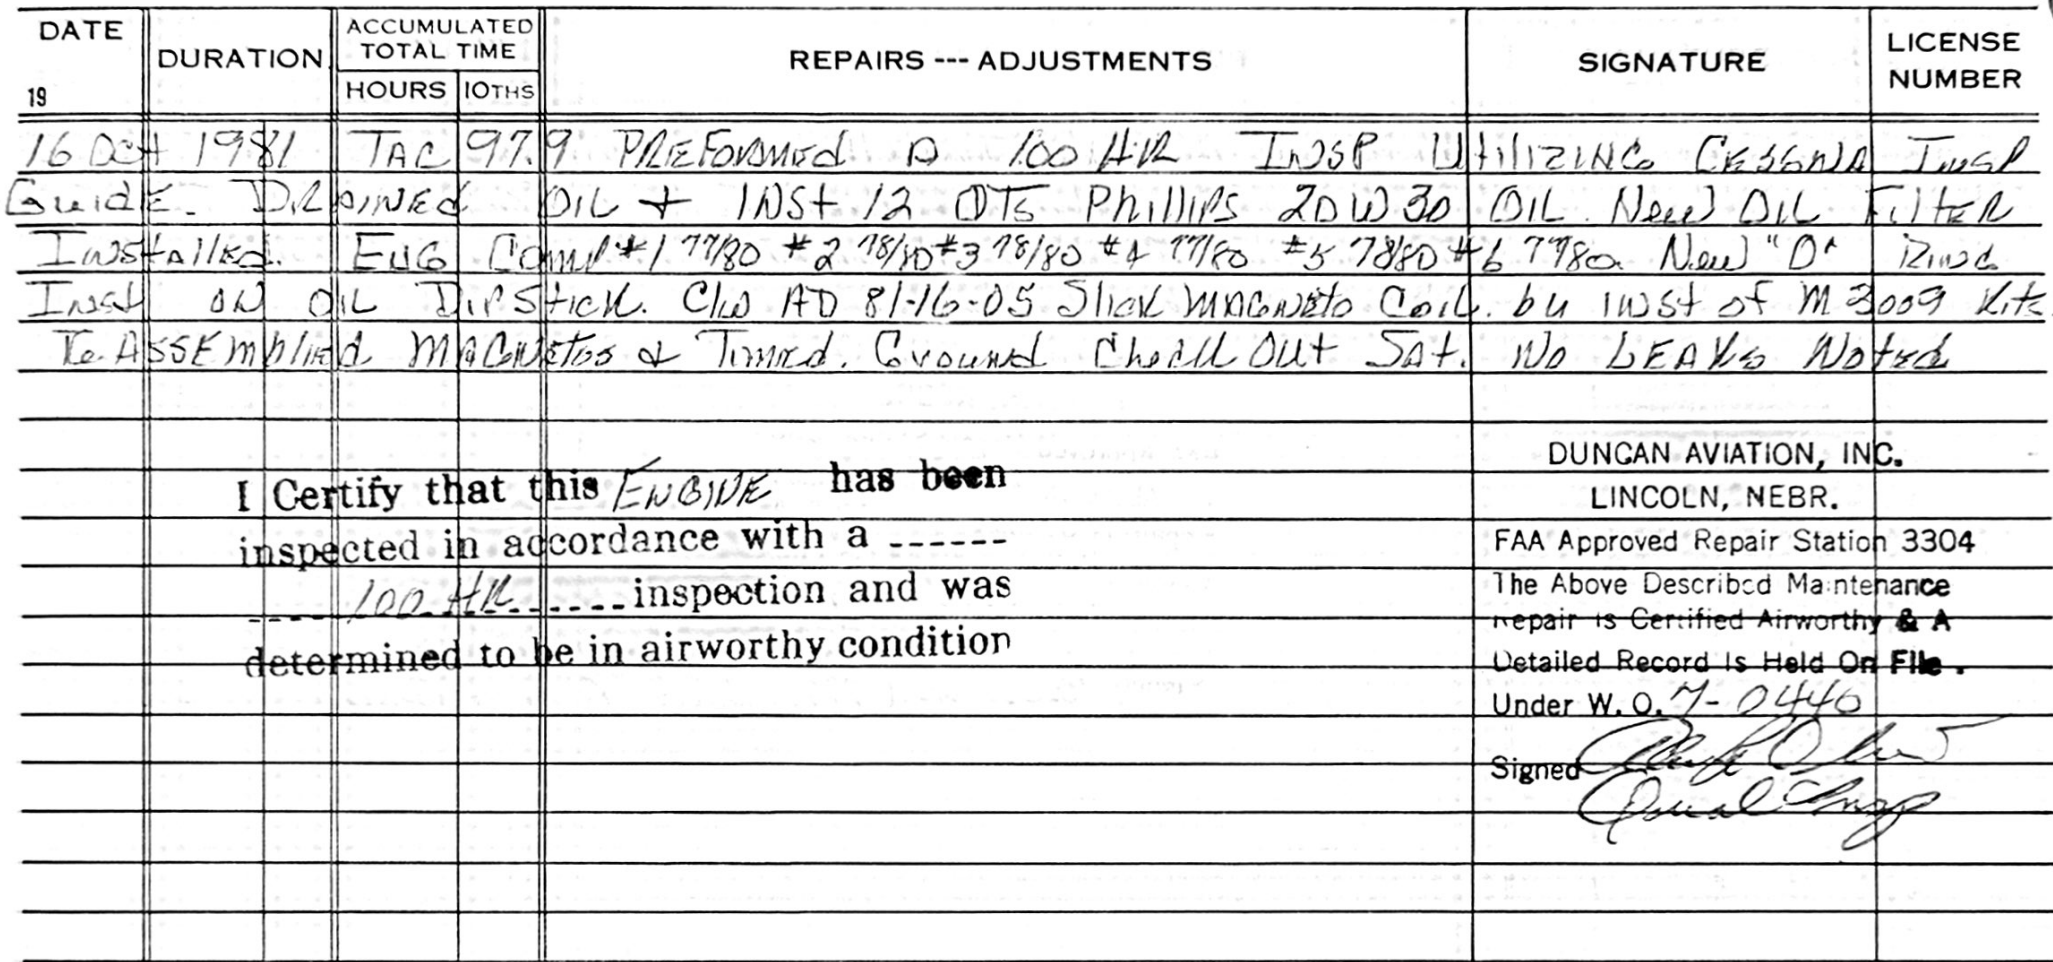 DATE
19
DURATION
ACCUMULATED
TOTAL TIME
HOURS 10THS
REPAIRS --- ADJUSTMENTS
SIGNATURE
LICENSE
NUMBER
16 Oct 1981 TAC 97.9 PREFormed A 100 HR INSP UtiliziNG CESSNA INSP
GuidE. DRAINEd OIL + INSt 12 QTs Phillips 20W30 OIL. New OIL FiltER
INStAllEd. ENG Comp #1 77/80 #2 78/80 #3 78/80 #4 77/80 #5 78/80 #6 77/80. New "O" RING
INSt ON OIL DIPStick. C/W AD 81-16-05 Slick MAGNEto Coil. by INSt of M 3009 Kits
ReASSEmblied MAGNEtos & Timed. Ground Check Out Sat. No LEAKs Noted
I Certify that this ENGINE has been
inspected in accordance with a ------
----- 100 HR ------ inspection and was
determined to be in airworthy condition
DUNCAN AVIATION, INC.
LINCOLN, NEBR.
FAA Approved Repair Station 3304
The Above Described Maintenance
Repair is Certified Airworthy & A
Detailed Record Is Held On File.
Under W. O. 7-0446
Signed